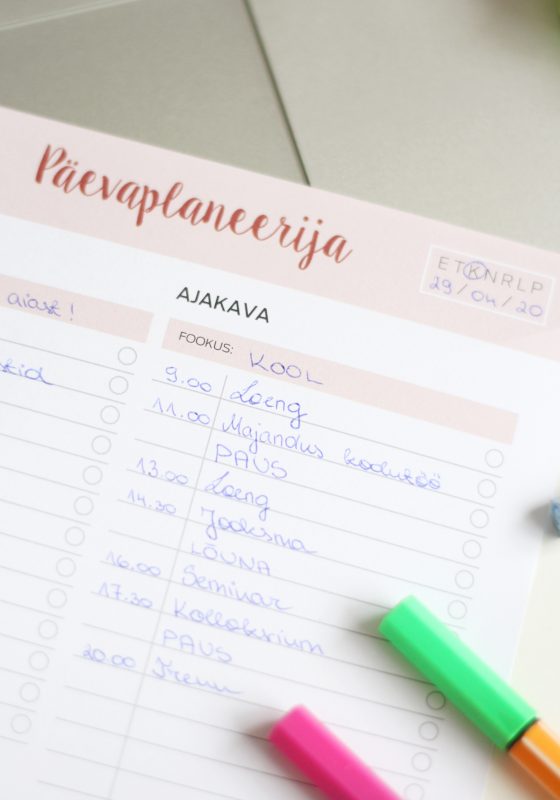 Päevaplaneerija
ETKNRLP
29/04/20
aiast!
AJAKAVA
FOOKUS: KOOL
9.00 Loeng
11.00 Majandus kodutöö
PAUS
13.00 Loeng
14.30 Jooksma
LÕUNA
16.00 Seminar
17.30 Kollokvium
PAUS
20.00 Trenn